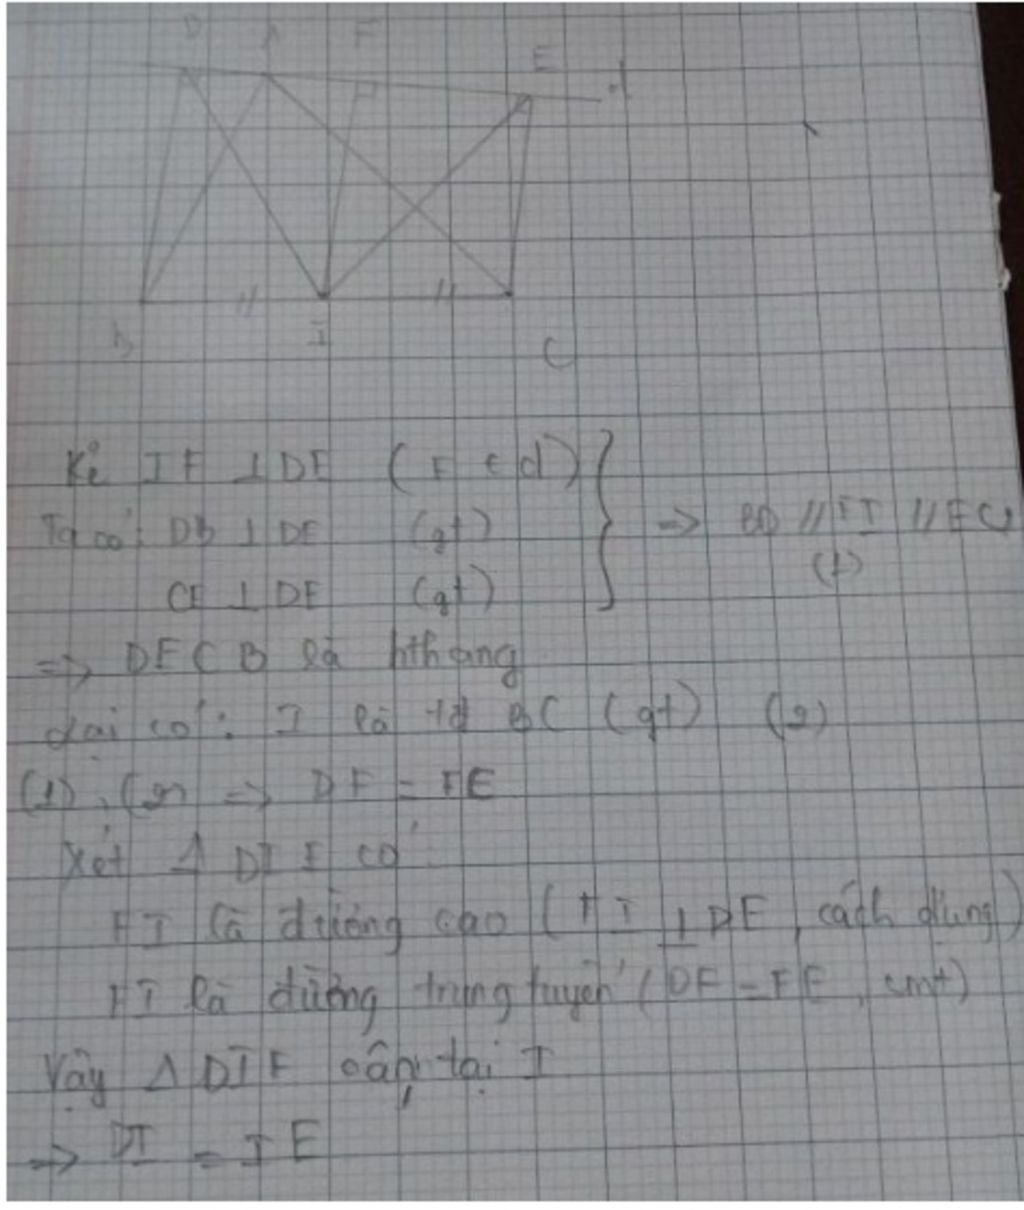 D A F E d
B I C
Kẻ IF ⊥ DE (F ∈ d)
Ta có: DB ⊥ DE (gt)
CE ⊥ DE (gt)
=> BD // FI // EC
(1)
=> DECB là hthang
Lại có: I là tđ BC (gt) (2)
(1), (2) => DF = FE
Xét Δ DIE có:
FI là đường cao (FI ⊥ DE, cách dựng)
FI là đường trung tuyến (DF = FE, cmt)
Vậy Δ DIE cân tại I
=> DI = IE